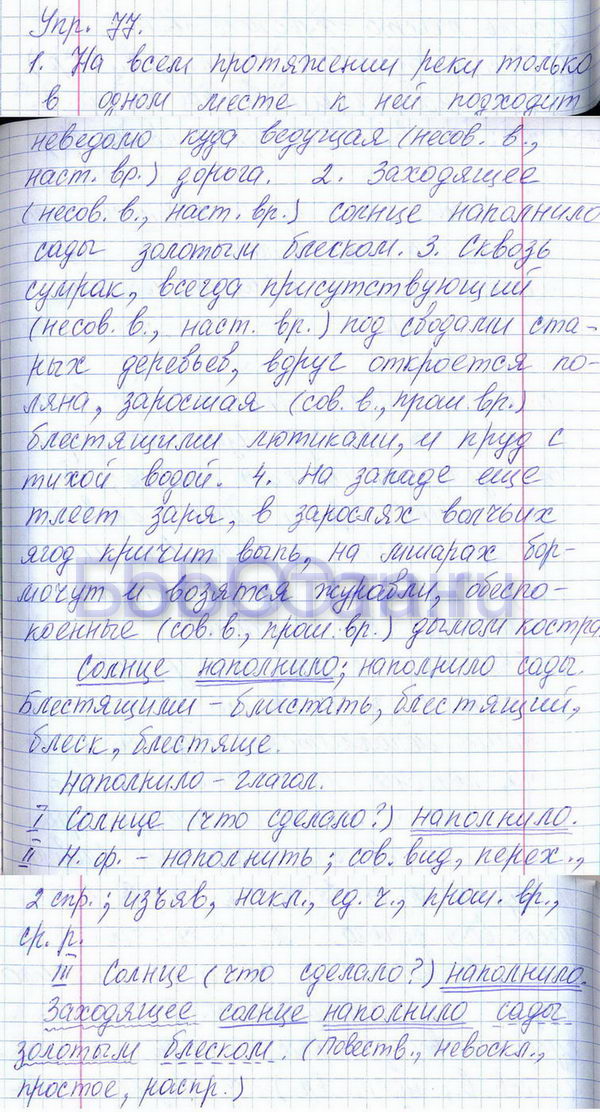 Упр. 77.
1. На всем протяжении реки только
в одном месте к ней подходит
неведомо куда ведущая (несов. в.,
наст. вр.) дорога. 2. Заходящее
(несов. в., наст. вр.) солнце наполнило
сады золотым блеском. 3. Сквозь
сумрак, всегда присутствующий
(несов. в., наст. вр.) под сводами ста-
рых деревьев, вдруг откроется по-
ляна, заросшая (сов. в., прош. вр.)
блестящими лютиками, и пруд с
тихой водой. 4. На западе еще
тлеет заря, в зарослях волчьих
ягод кричит выпь, на мшарах бор-
мочут и возятся журавли, обеспо-
коенные (сов. в., прош. вр.) дымом костра
Солнце наполнило; наполнило сады.
Блестящими - блистать, блестящий,
блеск, блестяще.
Наполнило - глагол.
I Солнце (что сделало?) наполнило.
II Н. ф. - наполнить; сов. вид, перех.,
2 спр.; изъяв, накл., ед. ч., прош. вр.,
ср. р.
III Солнце (что сделало?) наполнило.
Заходящее солнце наполнило сады
золотым блеском. (Повеств., невоскл.,
простое, распр.)